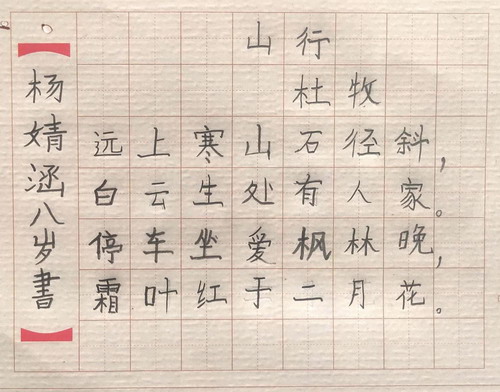 山行
杜牧
远上寒山石径斜，
白云生处有人家。
停车坐爱枫林晚，
霜叶红于二月花。
杨婧涵八岁書